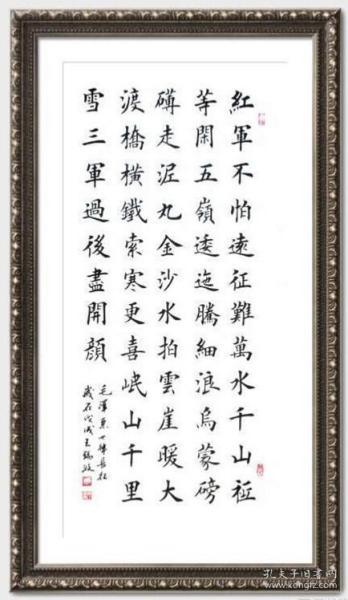 紅軍不怕遠征難萬水千山祗
等閑五嶺逶迤騰細浪烏蒙磅
礴走泥丸金沙水拍雲崖暖大
渡橋橫鐵索寒更喜岷山千里
雪三軍過後盡開顏
毛澤東七律長征
歲在戊戌王
孔夫子旧书网